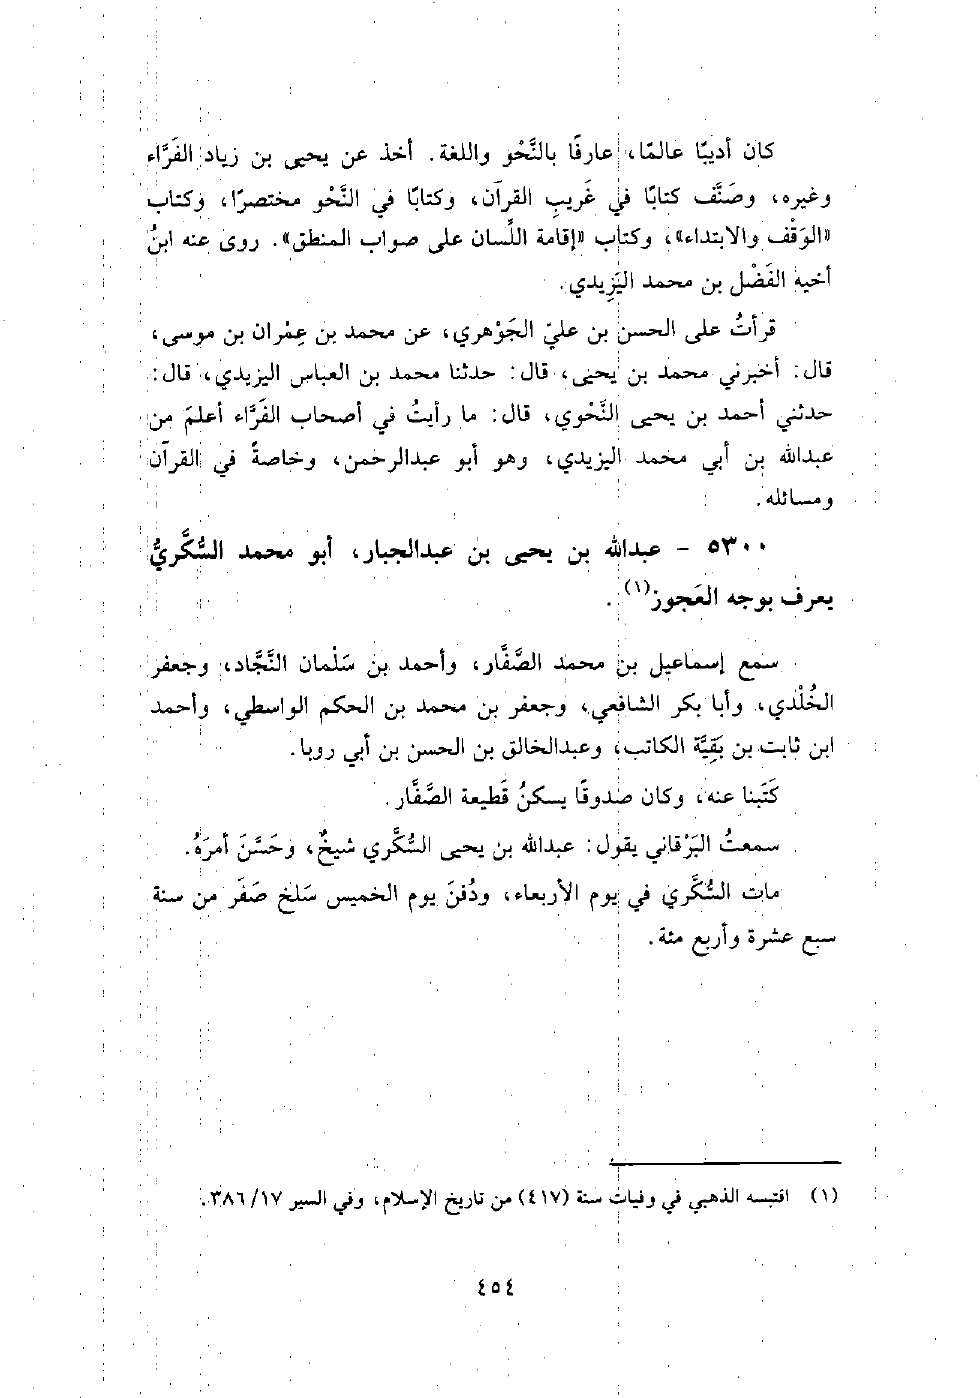 كان أديبًا عالمًا، عارفًا بالنَّحْو واللغة. أخذ عن يحيى بن زياد الفَرَّاء
وغيره، وصَنَّف كتابًا في غَريبِ القرآن، وكتابًا في النَّحْو مختصرًا، وكتاب
«الوَقْف والابتداء»، وكتاب «إقامة اللِّسان على صواب المنطق». روى عنه ابنُ
أخيه الفَضْل بن محمد اليَزِيدي.
قرأتُ على الحسن بن عليّ الجَوْهري، عن محمد بن عِمْران بن موسى،
قال: أخبرني محمد بن يحيى، قال: حدثنا محمد بن العباس اليزيدي، قال:
حدثني أحمد بن يحيى النَّحْوي، قال: ما رأيتُ في أصحاب الفَرَّاء أعلمَ من
عبدالله بن أبي محمد اليزيدي، وهو أبو عبدالرحمن، وخاصةً في القرآن
ومسائله.
٥٣٠٠ - عبدالله بن يحيى بن عبدالجبار، أبو محمد السُّكَّريُّ
يعرف بوجه العَجوز(١).
سمع إسماعيل بن محمد الصَّفَّار، وأحمد بن سَلْمان النَّجَّاد، وجعفر
الخُلْدي، وأبا بكر الشافعي، وجعفر بن محمد بن الحكم الواسطي، وأحمد
ابن ثابت بن بَقِيَّة الكاتب، وعبدالخالق بن الحسن بن أبي روبا.
كَتَبنا عنه، وكان صدوقًا يسكنُ قَطيعة الصَّفَّار.
سمعتُ البَرْقاني يقول: عبدالله بن يحيى السُّكَّري شيخٌ، وحَسَّنَ أمرَهُ.
مات السُّكَّري في يوم الأربعاء، ودُفنَ يوم الخميس سَلخ صَفَر من سنة
سبع عشرة وأربع مئة.
(١) اقتبسه الذهبي في وفيات سنة (٤١٧) من تاريخ الإسلام، وفي السير ١٧/ ٣٨٦.
٤٥٤